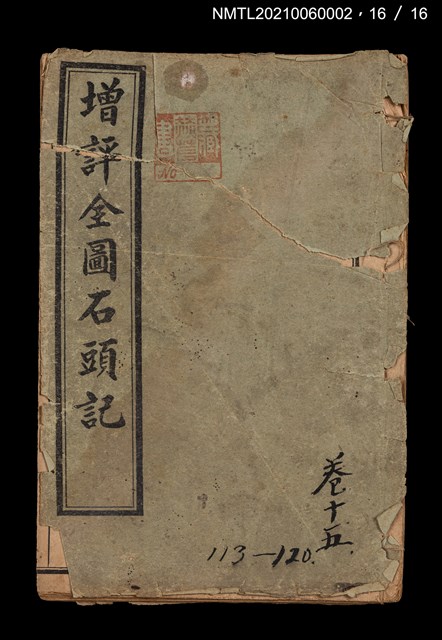 NMTL20210060002，16 / 16
增評全圖石頭記
卷十五
113—120.